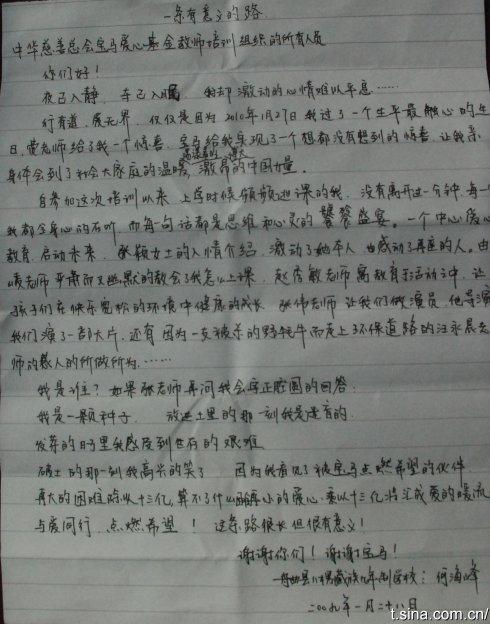 一条有意义的路
中华慈善总会宝马爱心基金教师培训组织的所有人员
你们好！
夜已入静 车已入眠 我却激动的心情难以平息……
行有道，爱无界，仅仅是因为2010年1月27日我过了一个生平最触心的生
日，老师给了我一个惊喜，宝马给我实现了一个想都没有想到的惊喜，让我亲
身体会到了社会大家庭的温暖，激昂的中国力量。
自参加这次培训以来，上学时候频频逃课的我，没有离开过一分钟，每一
我都全身心的在听 而每一句话都是思维和心灵的饕餮盛宴。一个中心爱心
教育，启动未来，张颖女士的入情介绍，激动了她本人 也感动了再座的人。由
老师平常而又幽默的教会了我怎么上课，赵秀敏老师寓教育于活动之中，让
孩子们在快乐宽松的环境中健康的成长 张伟老师让我们做演员，他导演
我们演了一部大片，还有因为一支被杀的野牦牛而走上环保道路的汪永晨老
师的感人的所做所为……
我是谁？如果张老师再问我会字正腔圆的回答：
我是一颗种子， 放进土里的那一刻我是速盲的
发芽的日子里我感受到世有的艰难
破土的那一刻我高兴的笑了 因为我看见了被宝马点燃希望的伙伴
再大的困难除以十三亿，算不了什么 再小的爱心，乘以十三亿将汇成爱的暖流
与爱同行，点燃希望！这条路很长但很有意义！
谢谢你们！谢谢宝马！
藏族九年制学校：何海峰
二〇〇九年一月二十八日
t.sina.com.cn/